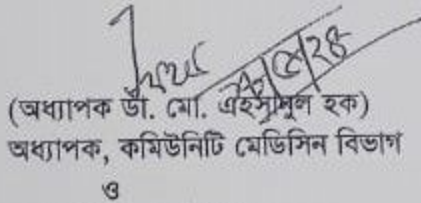 (অধ্যাপক ডা. মো. এহসানুল হক)
অধ্যাপক, কমিউনিটি মেডিসিন বিভাগ
ও